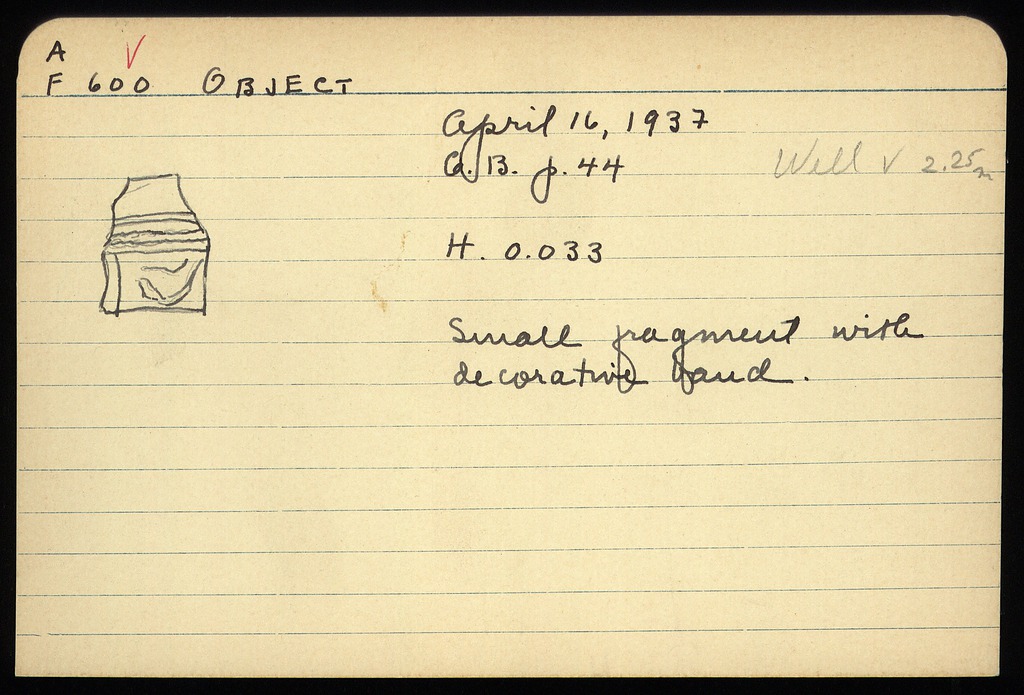 A
F 600 OBJECT
April 16, 1937
G.B. p. 44
Well V 2.25m
H. 0.033
Small fragment with
decorative band.